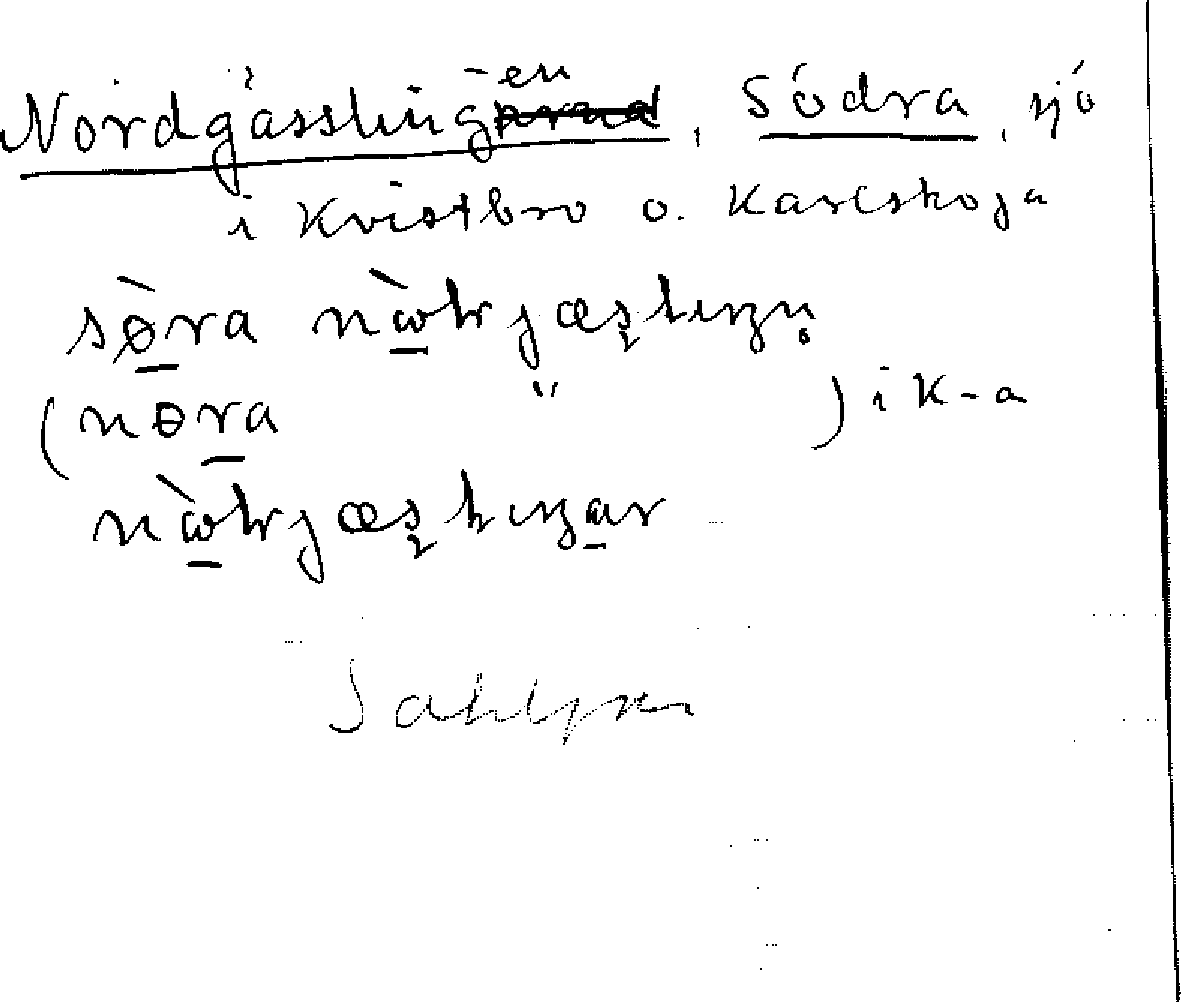 Nordgässlingen, Södra, sjö
i Kvistbro o. Karlskoga
sø̀ra nὼtrjæsliŋn̥
(nøra " ) i K-a
nὼtrjæsliŋar
Sahlgren